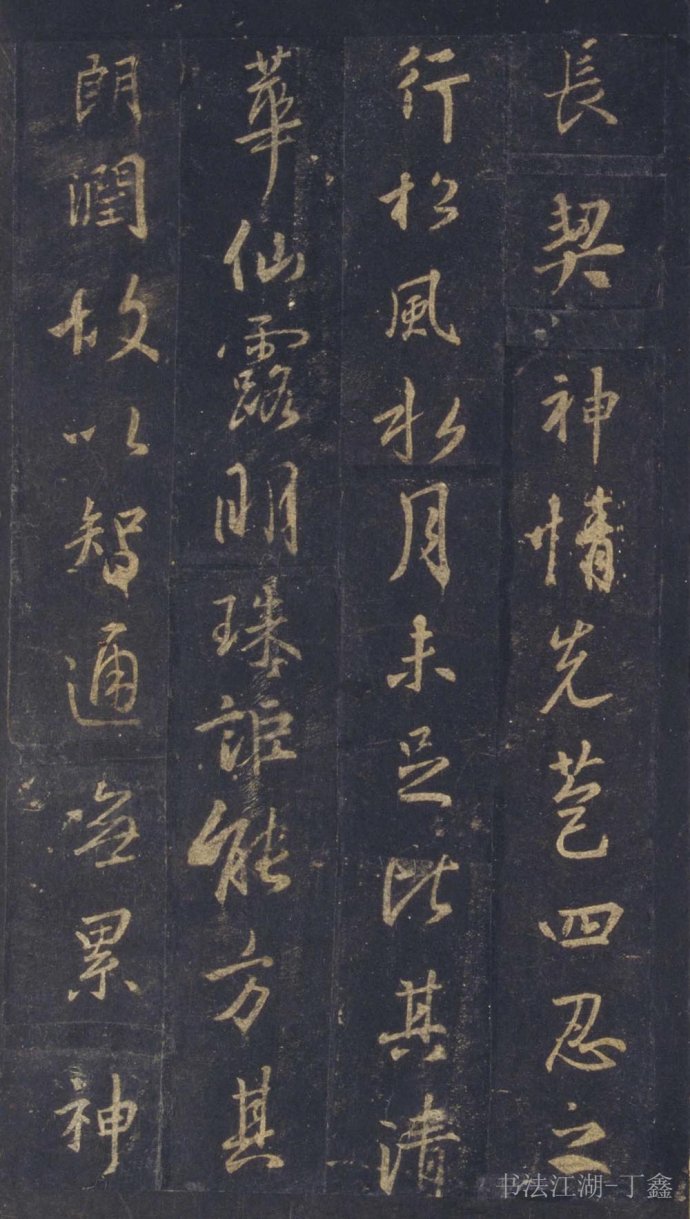 長契神情先苞四忍之
行松風水月未足比其清
華仙露明珠詎能方其
朗潤故以智通無累神
书法江湖-丁鑫